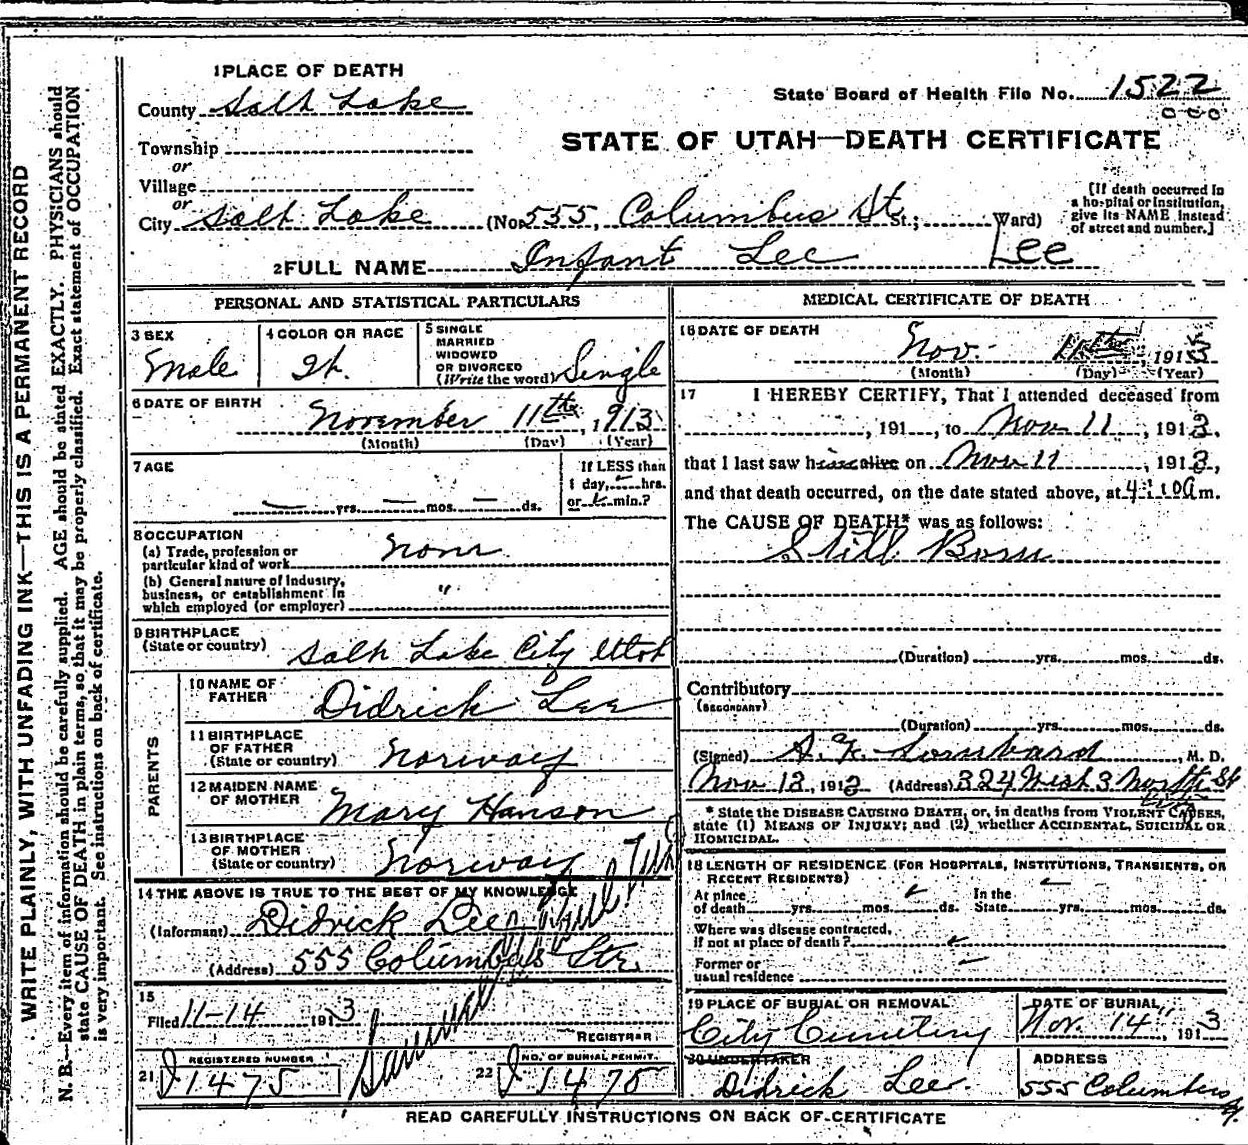 WRITE PLAINLY, WITH UNFADING INK—THIS IS A PERMANENT RECORD
N. B.—Every item of information should be carefully supplied. AGE should be stated EXACTLY. PHYSICIANS should
state CAUSE OF DEATH in plain terms, so that it may be properly classified. Exact statement of OCCUPATION
is very important. See instructions on back of certificate.
1 PLACE OF DEATH
County Salt Lake
State Board of Health File No. 1522
STATE OF UTAH—DEATH CERTIFICATE
Township
or
Village
or
City Salt Lake (No. 555, Columbus St. St.; Ward)
[If death occurred in
a hospital or institution,
give its NAME instead
of street and number.]
2 FULL NAME Infant Lee Lee
PERSONAL AND STATISTICAL PARTICULARS
3 SEX Male
4 COLOR OR RACE
5 SINGLE
MARRIED
WIDOWED
OR DIVORCED
(Write the word) Single
6 DATE OF BIRTH
November 11th, 1913
(Month) (Day) (Year)
7 AGE
yrs. mos. ds.
If LESS than
1 day, hrs.
or min.?
8 OCCUPATION
(a) Trade, profession or
particular kind of work None
(b) General nature of industry,
business, or establishment in
which employed (or employer) "
9 BIRTHPLACE
(State or country) Salt Lake City Utah
PARENTS
10 NAME OF
FATHER Didrick Lee
11 BIRTHPLACE
OF FATHER
(State or country) Norway
12 MAIDEN NAME
OF MOTHER Mary Hanson
13 BIRTHPLACE
OF MOTHER
(State or country) Norway
14 THE ABOVE IS TRUE TO THE BEST OF MY KNOWLEDGE
(Informant) Didrick Lee
(Address) 555 Columbus Str.
15
Filed 11-14 1913
REGISTRAR
REGISTERED NUMBER
21 J1475
NO. OF BURIAL PERMIT
22 J1475
MEDICAL CERTIFICATE OF DEATH
16 DATE OF DEATH
Nov. 11th, 1913
(Month) (Day) (Year)
17 I HEREBY CERTIFY, That I attended deceased from
, 191 , to Nov 11, 1913,
that I last saw him alive on Nov 11, 1913,
and that death occurred, on the date stated above, at 4:10 a m.
The CAUSE OF DEATH* was as follows:
Still Born
(Duration) yrs. mos. ds.
Contributory
(SECONDARY)
(Duration) yrs. mos. ds.
(Signed) Lombard, M. D.
Nov 13, 1913 (Address) 324 West 3 North St
* State the DISEASE CAUSING DEATH, or, in deaths from VIOLENT CAUSES,
state (1) MEANS OF INJURY; and (2) whether ACCIDENTAL, SUICIDAL OR
HOMICIDAL.
18 LENGTH OF RESIDENCE (FOR HOSPITALS, INSTITUTIONS, TRANSIENTS, OR
RECENT RESIDENTS)
At place
of death yrs. mos. ds.
In the
State yrs. mos. ds.
Where was disease contracted,
if not at place of death?
Former or
usual residence
19 PLACE OF BURIAL OR REMOVAL
City Cemetery
DATE OF BURIAL
Nov. 14", 1913
20 UNDERTAKER
Didrick Lee
ADDRESS
555 Columbus
READ CAREFULLY INSTRUCTIONS ON BACK OF CERTIFICATE